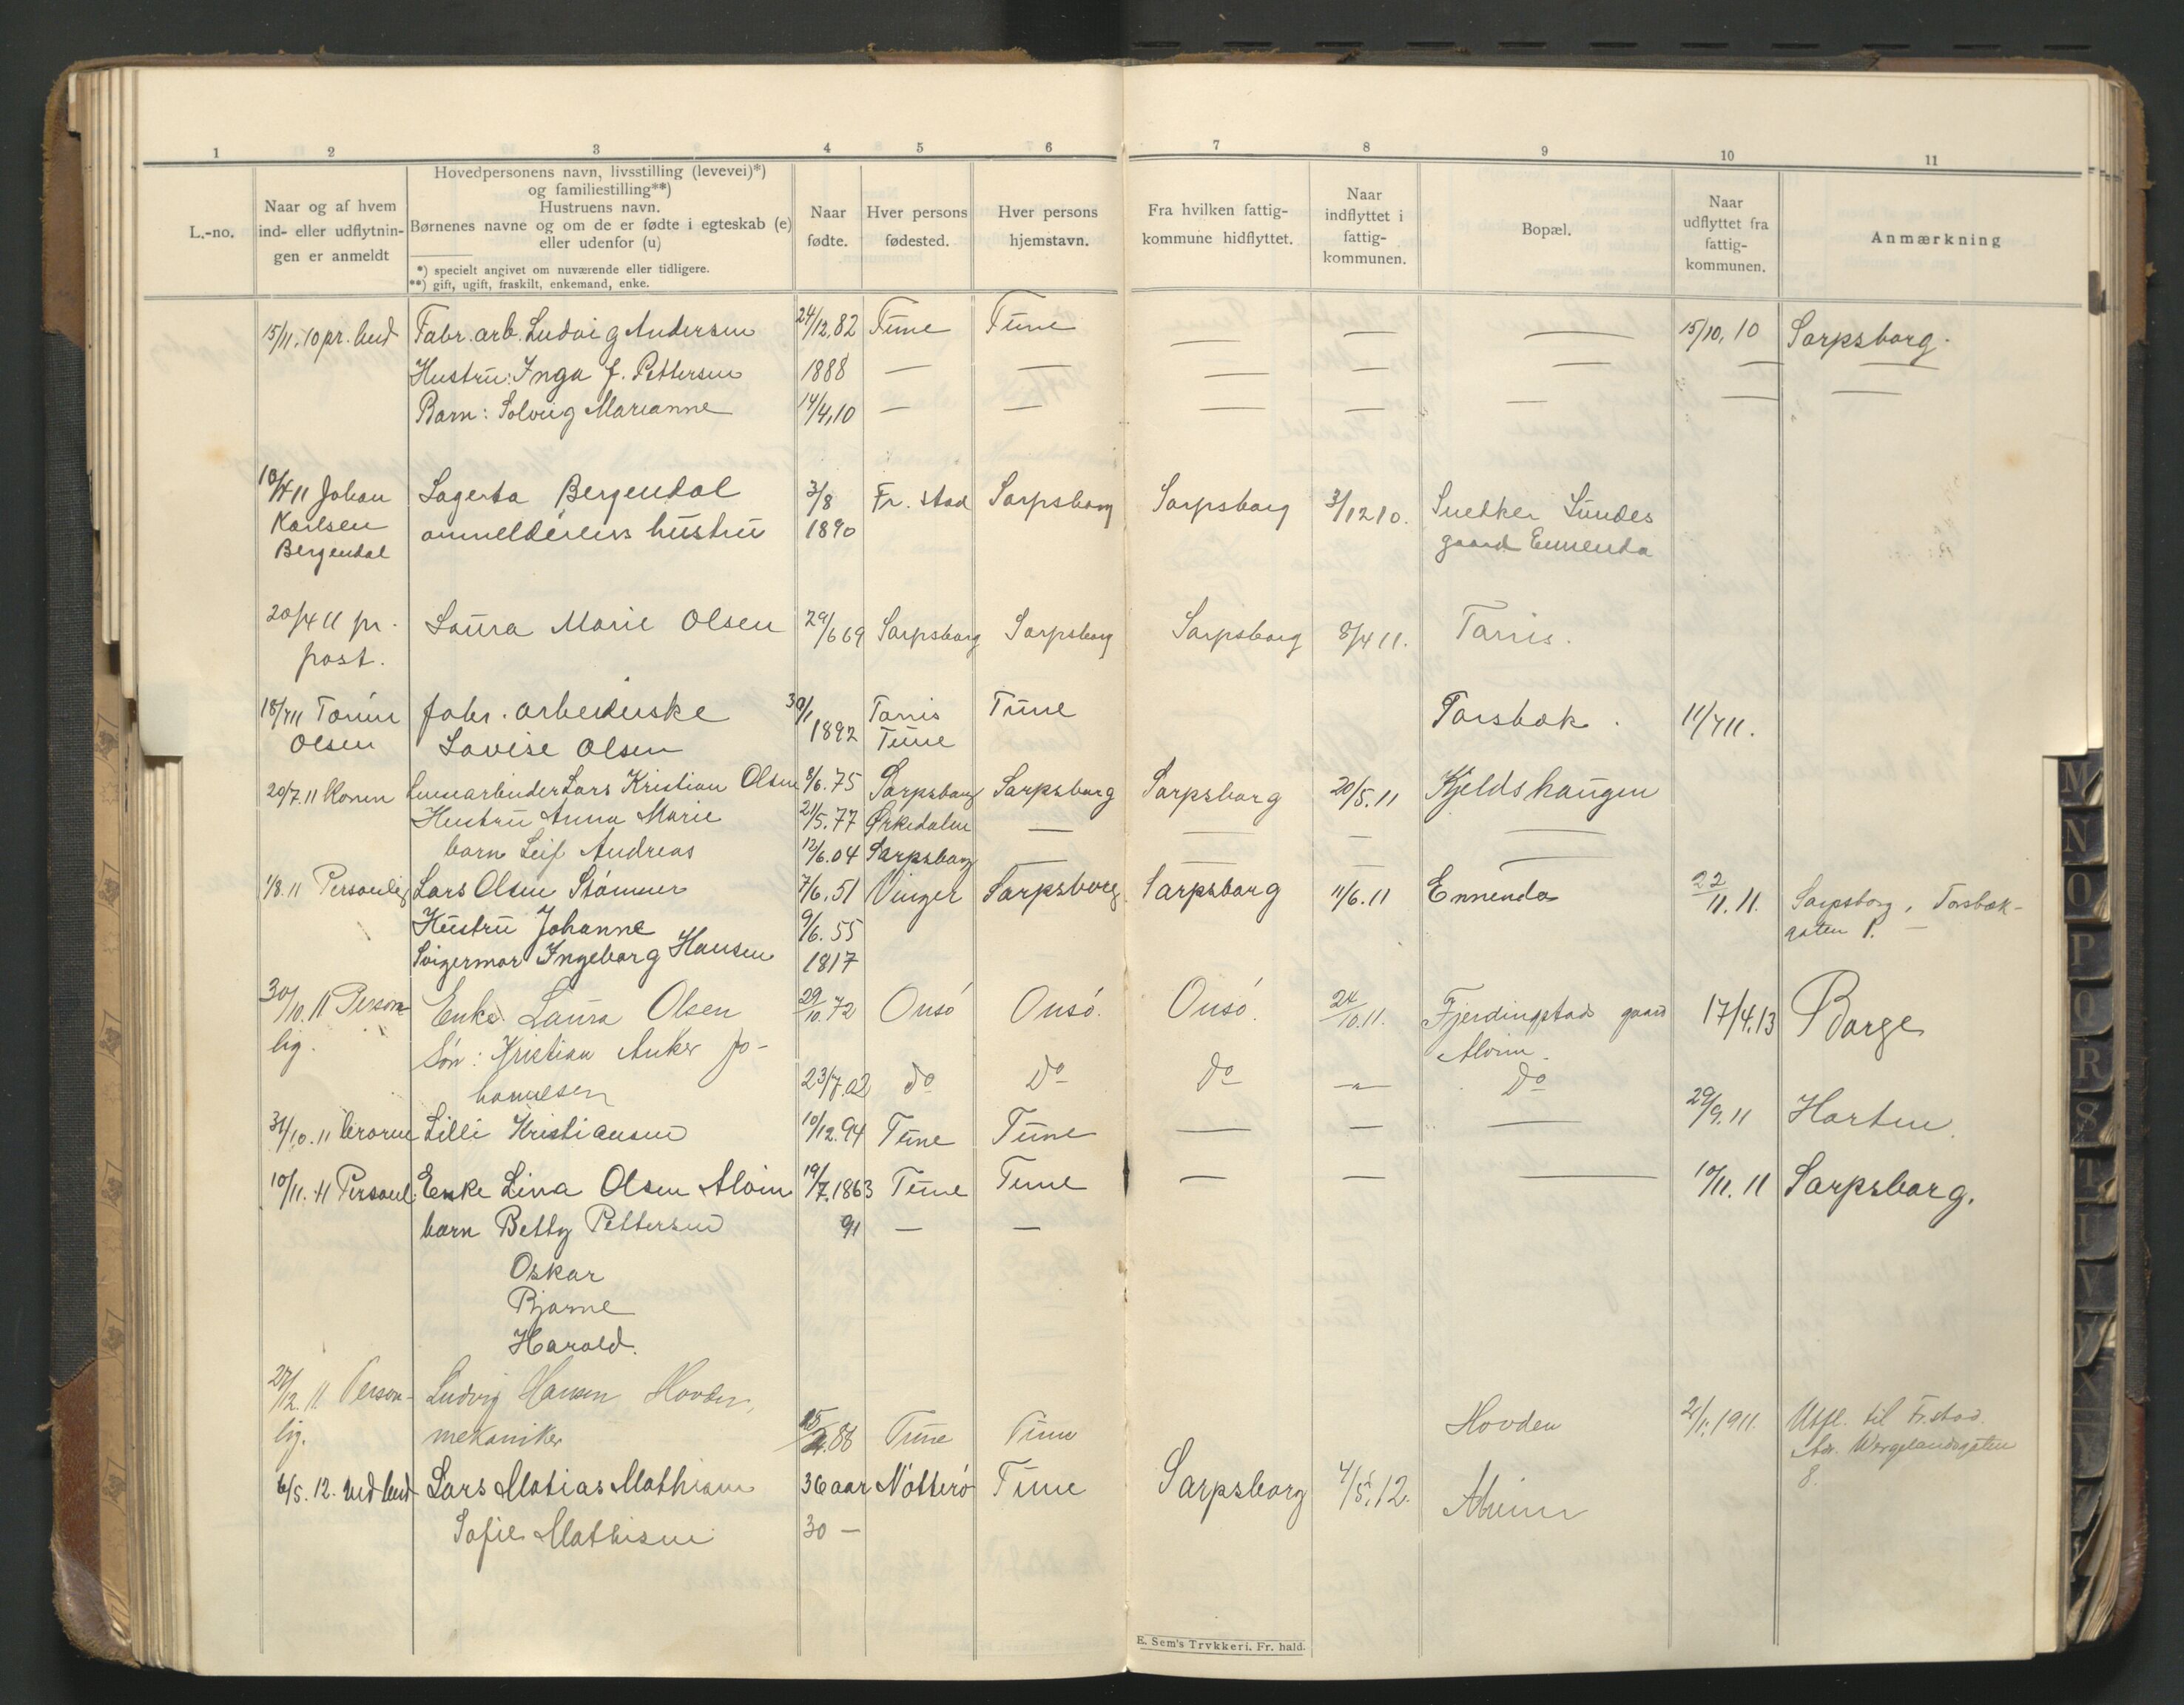 1 2 3 4 5 6 7 8 9 10 11
L.-no.
Naar og af hvem
ind- eller udflytnin-
gen er anmeldt
Hovedpersonens navn, livsstilling (levevei)*)
og familiestilling**)
Hustruens navn.
Børnenes navne og om de er fødte i egteskab (e)
eller udenfor (u)
*) specielt angivet om nuværende eller tidligere.
**) gift, ugift, fraskilt, enkemand, enke.
Naar
fødte.
Hver persons
fødested.
Hver persons
hjemstavn.
Fra hvilken fattig-
kommune hidflyttet.
Naar
indflyttet i
fattig-
kommunen.
Bopæl.
Naar
udflyttet fra
fattig-
kommunen.
Anmærkning
15/11. 10 pr. bud Fabr. arb. Ludvig Andersen 24/12, 82 Tune Tune — — — 15/10, 10 Sarpsborg.
Hustru: Inga f. Pettersen 1888 — — — — — — —
Barn: Solveig Marianne 14/4, 10 — — — — — — —
11 Johan Lagerta Bergendal 3/8 Fr. stad Sarpsborg Sarpsborg 3/12 10. Snekker Lundes
Karlsen anmelderens hustru 1890 gaard Ennenda
Bergendal
20/4 11 pr. Laura Marie Olsen 29/6 69 Sarpsborg Sarpsborg Sarpsborg 8/4 11. Tarris.
post.
18/7 11 Olsen fabr. arbeiderske 30/1 Tarris Tune Torsbæk. 11/7 11.
Lovise Olsen 1892 Tune
20/7. 11 Konen Lars Kristian Olsen 8/6. 75 Sarpsborg Sarpsborg Sarpsborg 20/5. 11 Kjeldshaugen
Hustru Anna Marie 21/5. 77 Ørkedalen — — — —
barn Leif Andreas 12/6. 04 Sarpsborg — — — —
1/8. 11 Personlig Lars Olsen Stømner 7/6. 51 Vinger Sarpsborg Sarpsborg 11/6. 11 Ennenda 22/11. 11. Sarpsborg, Torsbæk-
gaten P. —
Hustru Johanne 9/6. 55
Svigermor Ingeborg Hansen 1817
30/10. 11 Person- Enke Laura Olsen 29/10. 72 Onsö Onsö. Onsö. 24/10. 11. Fjerdingstad gaard 17/4. 13 Borge
lig. Søn: Kristian Anker Jo- Alvim.
hannesen 23/7. 02 do do do — do
31/10. 11 Lilli Kristiansen 10/12. 94 Tune Tune — — — 29/9. 11 Horten.
10/11. 11 Personl. Enke Lina Olsen Alvim 19/7. 1863 Tune Tune — — — 10/11. 11 Sarpsborg.
barn Betty Pettersen 91 — —
Oskar
Bjarne
Harald.
27/12. 11 Person- Ludvig Hansen Hovden,
lig. mekaniker 88 Tune Tune Hovden 2/1. 1911. Utfl. til Fr.stad.
Adr. Wergelandsgaten
8.
6/5. 12. ved bud Lars Matias Mathisen 36 aar Nötterö Tune Sarpsborg 4/5. 12. Alvim
Sofie Mathisen 30 —
E. Sem's Trykkeri. Fr. hald.
M
N
O
P
Q
R
S
T
U
V
Y
X